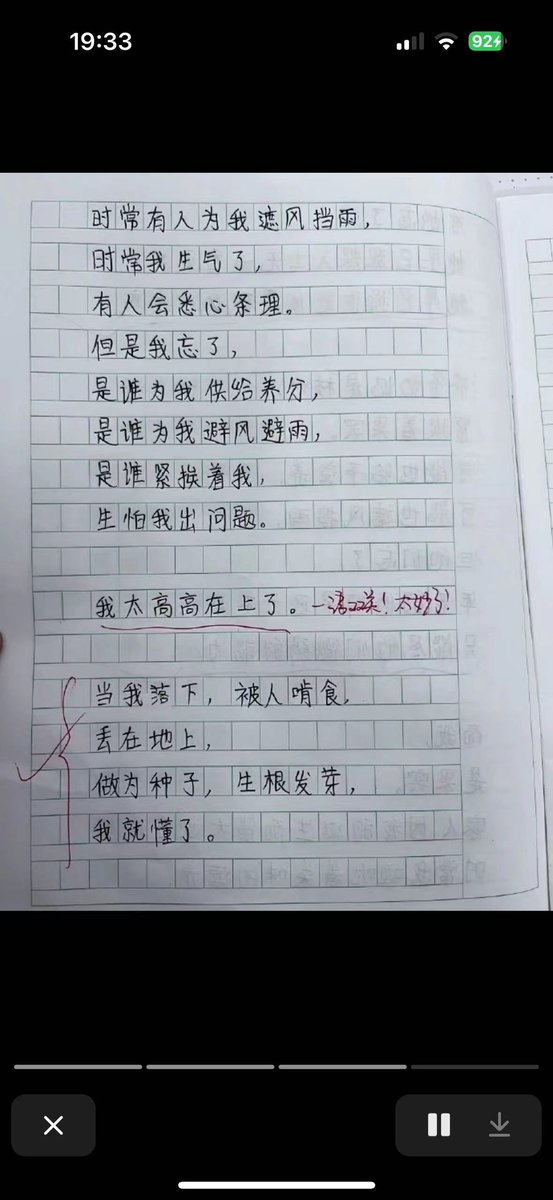 19:33
92
时常有人为我遮风挡雨，
时常我生气了，
有人会悉心条理。
但是我忘了，
是谁为我供给养分，
是谁为我避风避雨，
是谁紧挨着我，
生怕我出问题。
我太高高在上了。一语双关！太妙了！
当我落下，被人啃食，
丢在地上，
做为种子，生根发芽，
我就懂了。